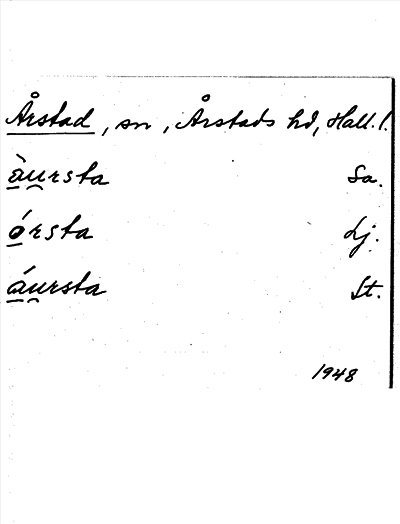 Årstad, sn, Årstads hd, Hall. l.
àu̯rsta Sa.
órsta Lj.
áu̯rsta St.
1948